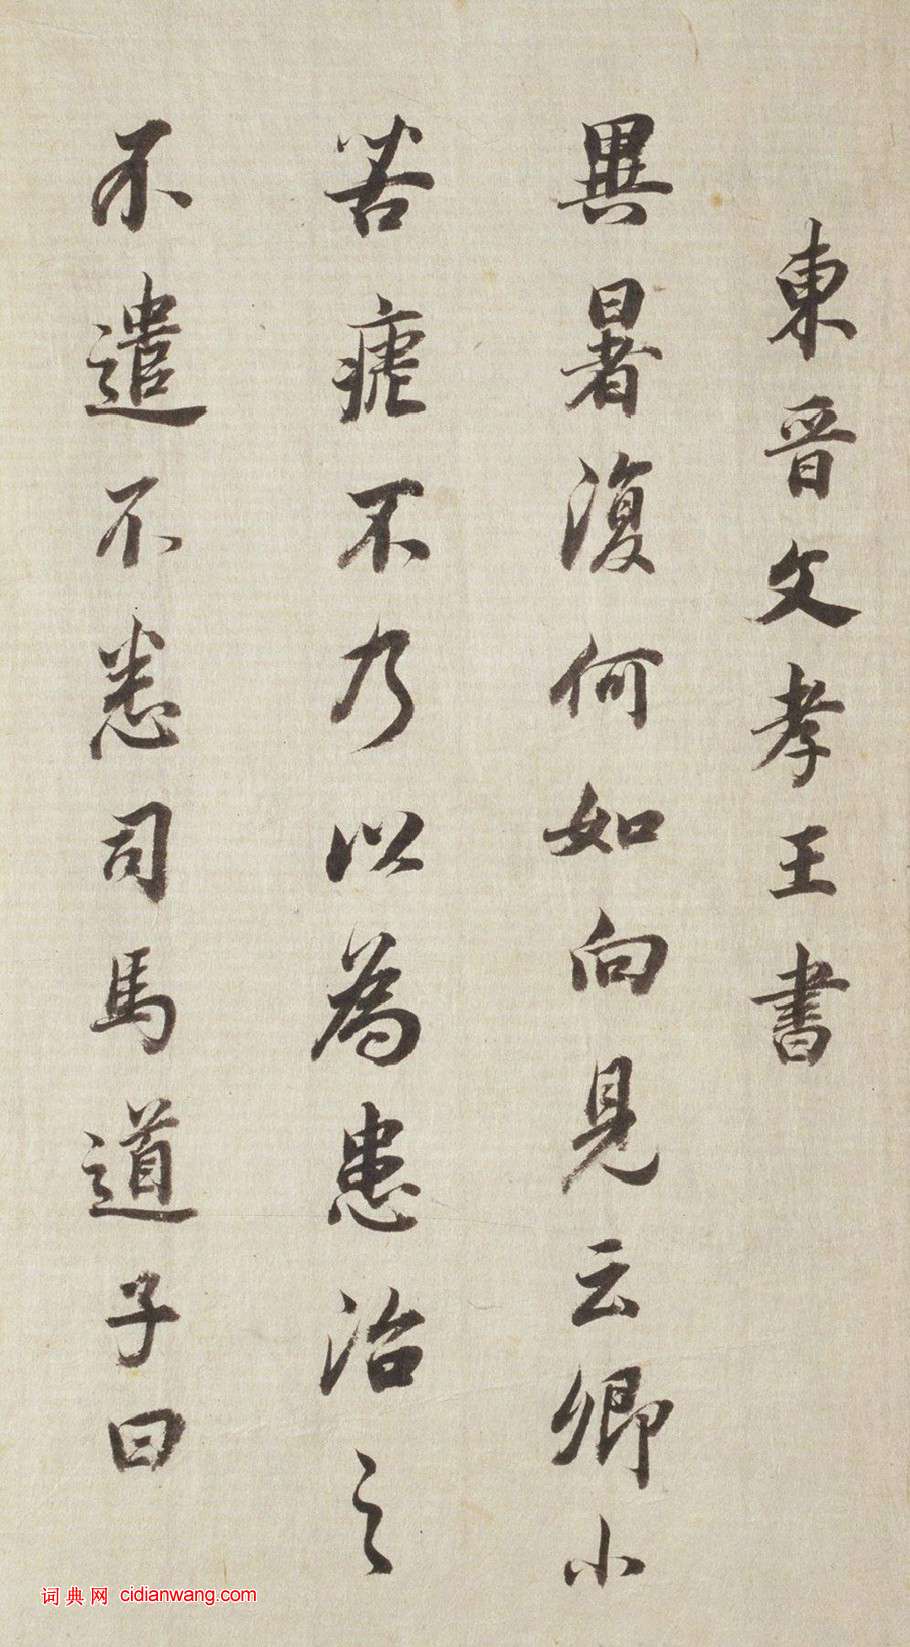 東晉文孝王書
異暑復何如向見云卿小
苦瘧不乃以為患治之
不遣不悉司馬道子曰
词典网 cidianwang.com